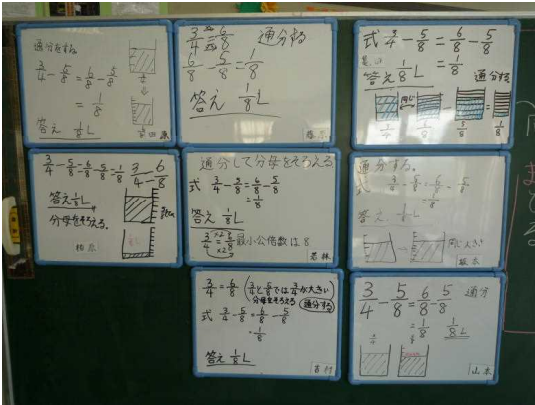 通分をする。
3/4 - 5/8 = 6/8 - 5/8
= 1/8
答え 1/8L
3/4 = 6/8 通分する
6/8 - 5/8 = 1/8
答え 1/8L
式 3/4 - 5/8 = 6/8 - 5/8
= 1/8
答え 1/8L 通分する
5/8
1/8
3/4 - 5/8 = 6/8 - 5/8 = 1/8 3/4 - 6/8
答え 1/8L
分母をそろえる。
通分して分母をそろえる。
式 3/4 - 5/8 = 6/8 - 5/8
= 1/8
答え 1/8L
3/4 = 6/8 最小公倍数は8
×2
×2
若林
通分する。
式 3/4 - 5/8 = 6/8 - 5/8
答え 1/8L
同じ大きさ
3/4 = 6/8 (3/4と5/8では3/4が大きい
分母をそろえる 通分する)
式 3/4 - 5/8 = 6/8 - 5/8
= 1/8
答え 1/8L
3/4 - 5/8 = 6/8 - 5/8 通分
= 1/8 1/8L
山本